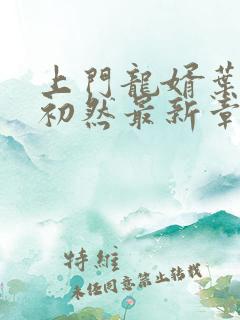 上門龍婿葉
初然最新章
特維
未任同意禁止转载